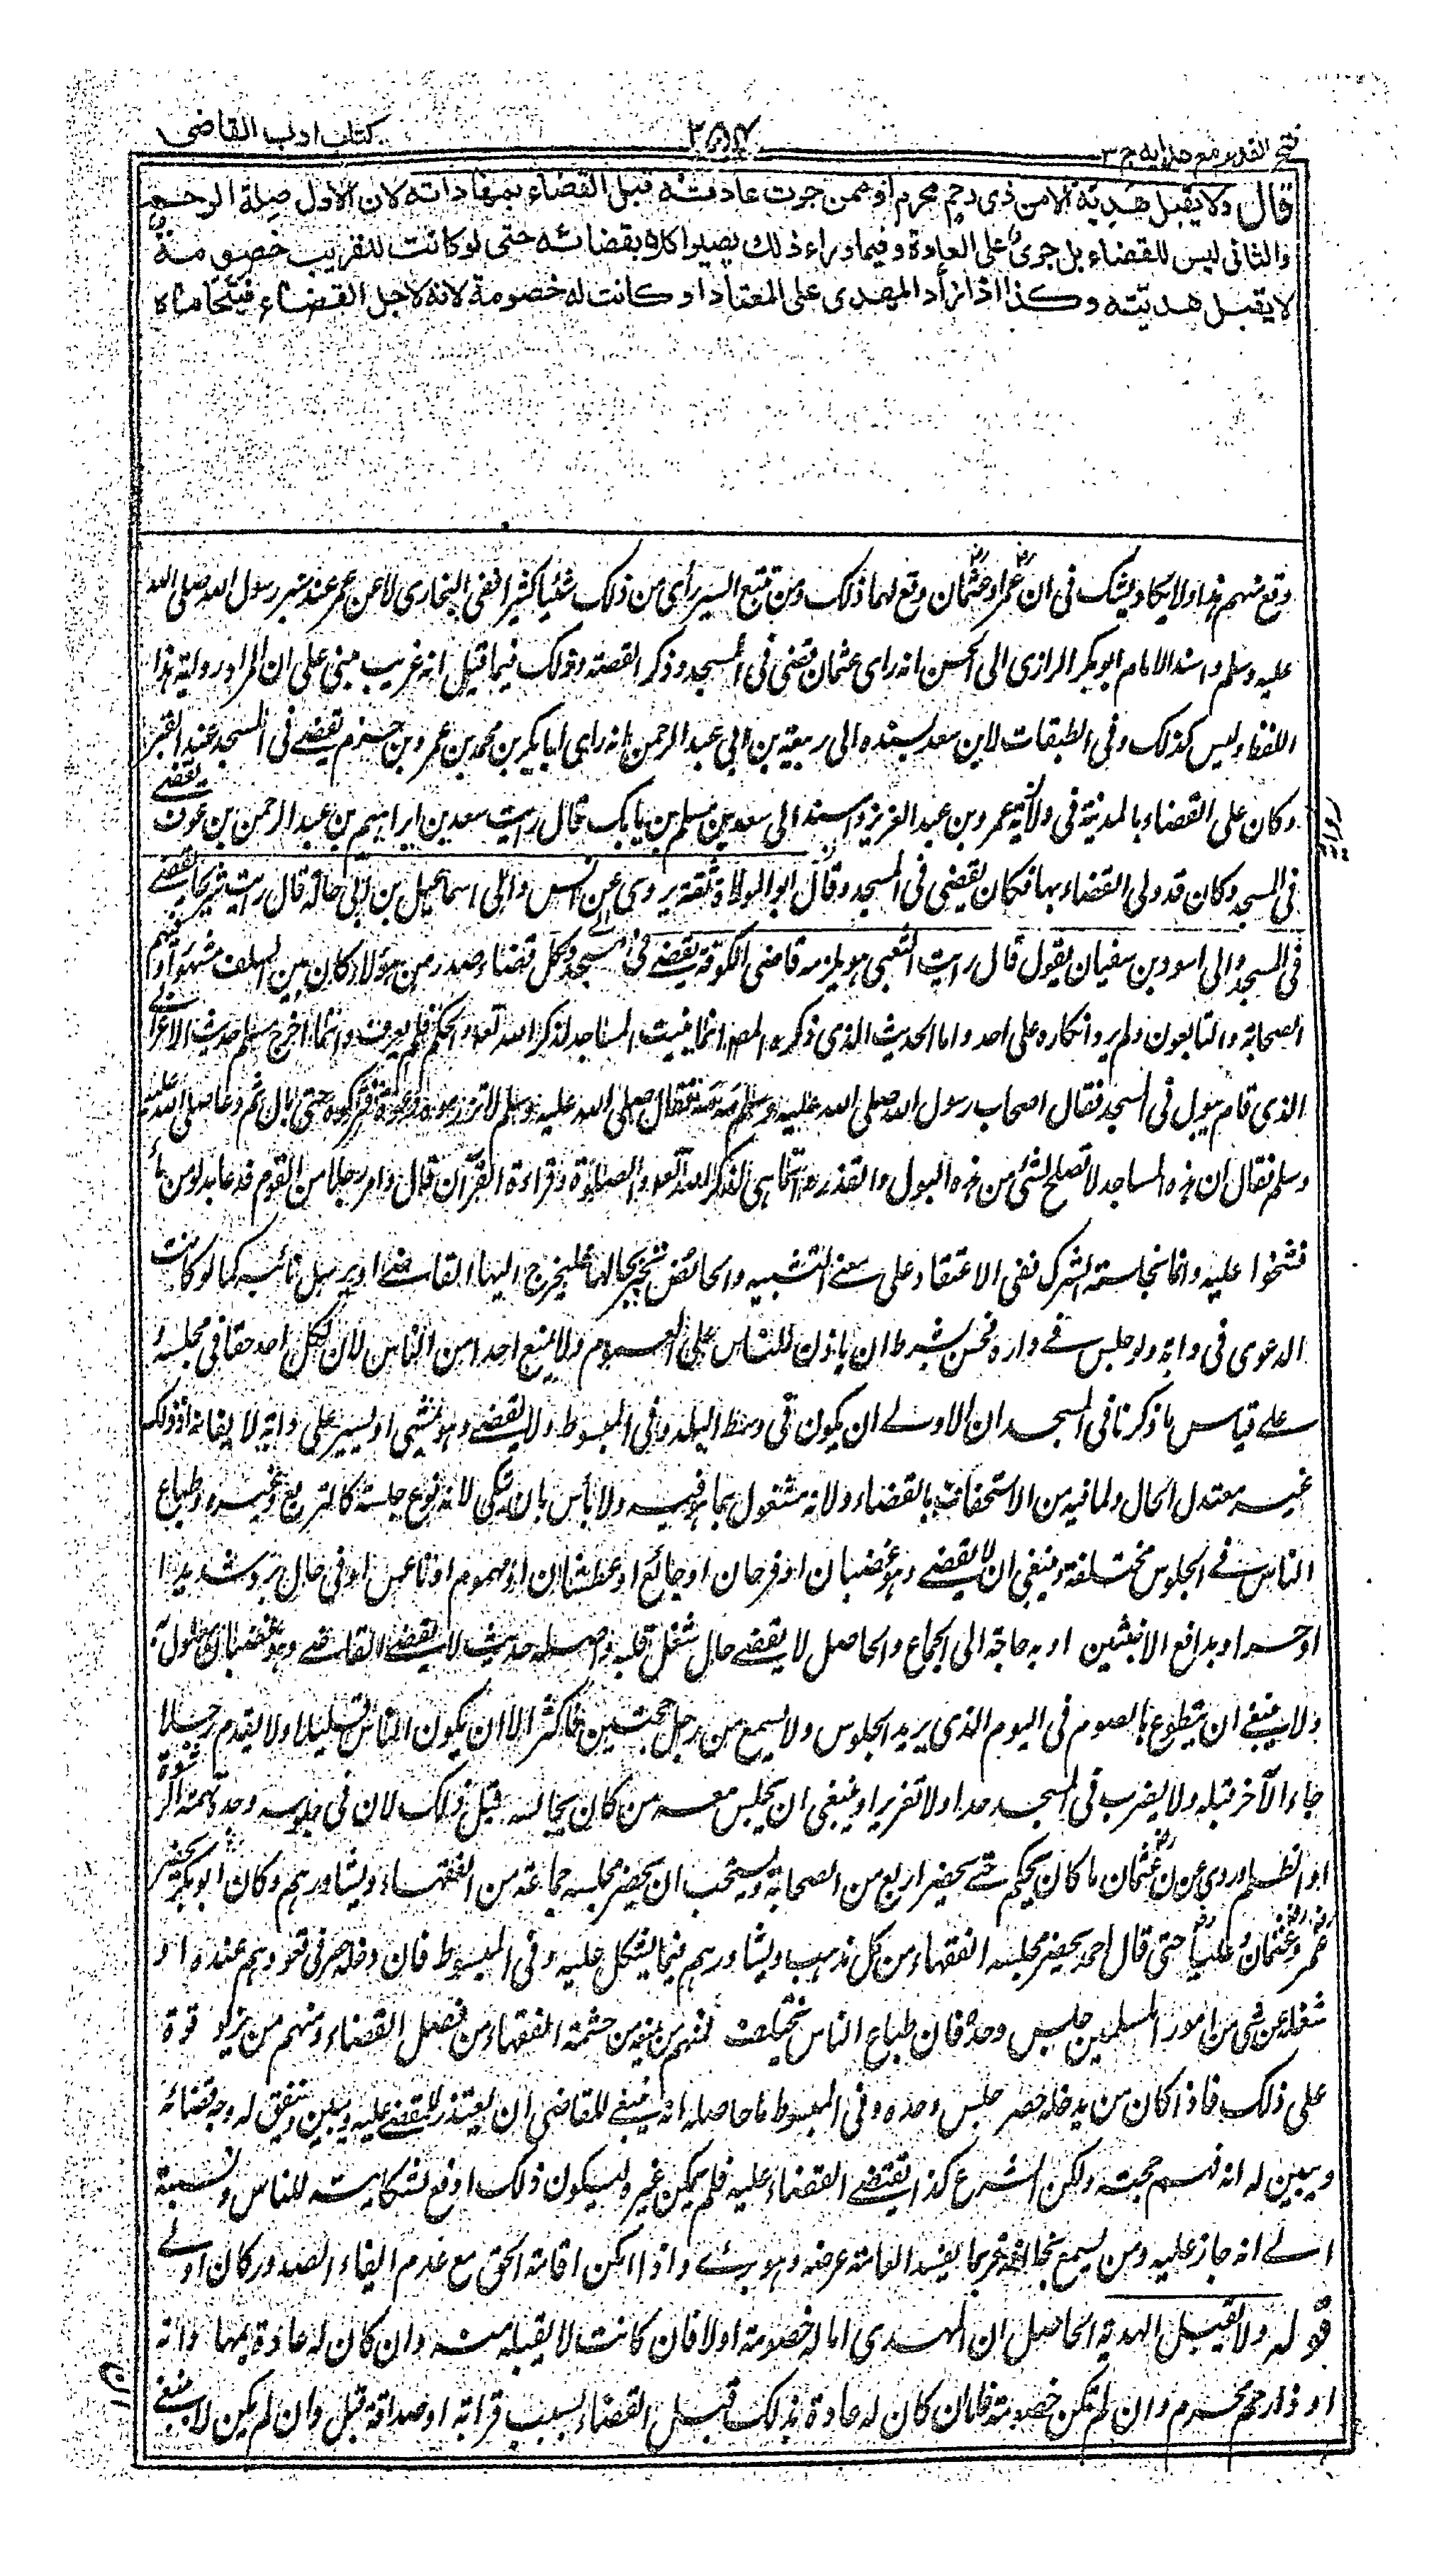 فتح القدير مع هدايه ج ٣
كتاب ادب القاضى
قال ولا يقبل هدية الا من ذى رحم محرم او ممن جرت عادته قبل القضاء بمهاداته لان الاول صلة الرحم
والثانى ليس للقضاء بل جرى على العادة وفيما وراء ذلك يصير اكلا بقضائه حتى لو كانت للقريب خصومة
لا يقبل هديته وكذا اذا زاد المهدى على المعتاد او كانت له خصومة لانه لاجل القضاء فيتحاماه
وقع منهم هذا ولا يكاد يشك فى ان عمر وعثمان وقع لهما ذلك ومن تتبع السير رأى من ذلك شيئا كثيرا ففى البخارى لاعن عمر عند منبر رسول الله صلى الله
عليه وسلم واسند الامام ابو بكر الرازى الى الحسن انه راى عثمان قضى فى المسجد وذكر القصة وذلك فيما قيل انه غريب مبنى على ان المراد رواية هذا
اللفظ وليس كذلك وفى الطبقات لابن سعد بسنده الى ربيعة بن ابى عبد الرحمن انه راى ابا بكر بن محمد بن عمرو بن حزم يقضے فى المسجد عند القبر
وكان على القضاء بالمدينة فى ولاية عمر بن عبد العزيز واسند الى سعيد بن مسلم بن بابك قال رايت سعد بن ابراهيم بن عبد الرحمن بن عوف يقضے
فى المسجد وكان قد ولى القضاء بها فكان يقضى فى المسجد وقال ابو المولاة ثقة يروى عن انس والى اسماعيل بن ابى خالد قال رايت شريحا يقضے
فى المسجد والى اسود بن سفيان يقول قال رايت الشعبى هو يلزمه قاضى الكوفة يقضے فى المسجد وكل قضاء صدر من هؤلاء كان بين السلف مشهورا وفيهم
الصحابة والتابعون ولم يرو انكاره على احد واما الحديث الذى ذكره المص انما بنيت المساجد لذكر الله تعه والحكم فلم يعرف وانما اخرج مسلم حديث الاعرابى
الذى قام يبول فى المسجد فقال اصحاب رسول الله صلى الله عليه وسلم مه مه فقال صلى الله عليه وسلم لا تزرموه دعوه فتركوه حتى بال ثم دعا صلى الله عليه
وسلم فقال ان هذه المساجد لا تصلح لشئ من هذه البول والقذر وانما هى لذكر الله تعه والصلوة وقراءة القرآن قال وامر رجلا من القوم فدعا بدلو من ماء
فشنوا عليه واما نجاسة المشرك ففى الاعتقاد على معنى التشبيه والحائض تخبر بحالها فليخرج اليها القاضے او يرسل نائبه كما لو كانت
الدعوى فى دابة ولو جلس فے داره فحسن بشرط ان ياذن للناس على العموم ولا يمنع احدا من الناس لان لكل احد حقا فى مجلسه
على قياس ما ذكرنا فى المسجد ان الاولے ان يكون فى وسط البلد وفى المبسوط ولا يقضے وهو يمشى او يسير على دابة لانه اذ ذلك
غير معتدل الحال ولما فيه من الاستخفاف بالقضاء ولانه مشغول بما هو فيه ولا بأس بان يتكى لانه نوع جلسة كالتربع وغيره وطباع
الناس فے الجلوس مختلفة وينبغى ان لا يقضے وهو غضبان او فرحان او جائع او عطشان او مهموم او ناعس او فى حال برد شديد
او حر او يدافع الاخبثين او به حاجة الى الجماع والحاصل لا يقضے حال شغل قلبه واصله حديث لا يقضے القاضے وهو غضبان
ولا ينبغے ان يتطوع بالصوم فى اليوم الذى يريد الجلوس ولا يسمع من رجل حجتين فاكثر الا ان يكون الناس قليلا ولا يقدم رجلا
جاء الآخر قبله ولا يضرب فى المسجد حدا ولا تعزيرا وينبغى ان يجلس معه من كان يجالسه قبل ذلك لان فى جلوسه وحده تهمة الرشوة
او الظلم وروى عن عثمان ما كان يحكم حتے يحضر اربع من الصحابة ويستحب ان يحضر مجلسه جماعة من الفقهاء ويشاورهم وكان ابو بكر يحضر
عمر وعثمان وعليا حتى قال احمد يحضر مجلسه الفقهاء من كل مذهب ويشاورهم فيما يشكل عليه وفى المبسوط فان دخله حصر فى قعودهم عنده او
شغله عن شئ من امور المسلمين جلس وحده فان طباع الناس تختلف فمنهم من يمنعه من حشمة الفقهاء من فصل القضاء ومنهم من يزداد قوة
على ذلك فاذا كان من يدخله حصر جلس وحده وفى المبسوط ما حاصله انه ينبغے للقاضى ان يعتذر للمقضے عليه ويبين له وجه قضائه
ويبين له انه فهم حجته ولكن الشرع كذا يقتضے القضاء عليه فلم يمكن غيره ليكون ذلك ادفع لشكايته للناس ونسبته
الے انه جار عليه ومن يسمع يخل فربما يفسد العامة عرضه وهو برئ واذا امكن اقامة الحق مع عدم ايغار الصدور كان اولے
قوله ولا يقبل الهدية الحاصل ان المهدى اما له خصومة اولا فان كانت لا يقبله منه وان كان له عادة بمهاداته
او ذا رحم محرم وان لم تكن خصومة فاما ان كان له عادة بذلك قبل القضاء بسبب قرابة او صداقة قبل وان لم يكن لا ينبغے